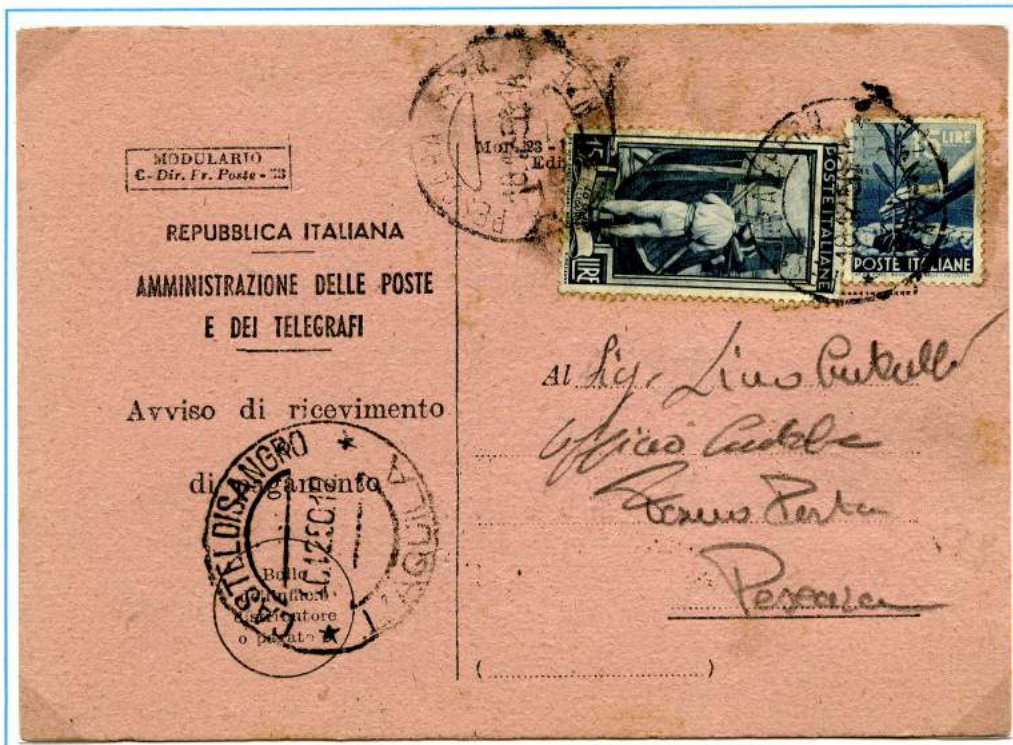 MODULARIO
C-Dir. Fr. Poste - 23
REPUBBLICA ITALIANA
AMMINISTRAZIONE DELLE POSTE
E DEI TELEGRAFI
Avviso di ricevimento
di pagamento
CASTEL DI SANGRO
AQUILA
Bollo
dell'ufficio
distributore
o pagato
Mod. 23 - 
Edi
PESCARA
15
LIRE
POSTE ITALIANE
LIRE
POSTE ITALIANE
Al Sig. Lino
Ufficio
Pescara
(
)